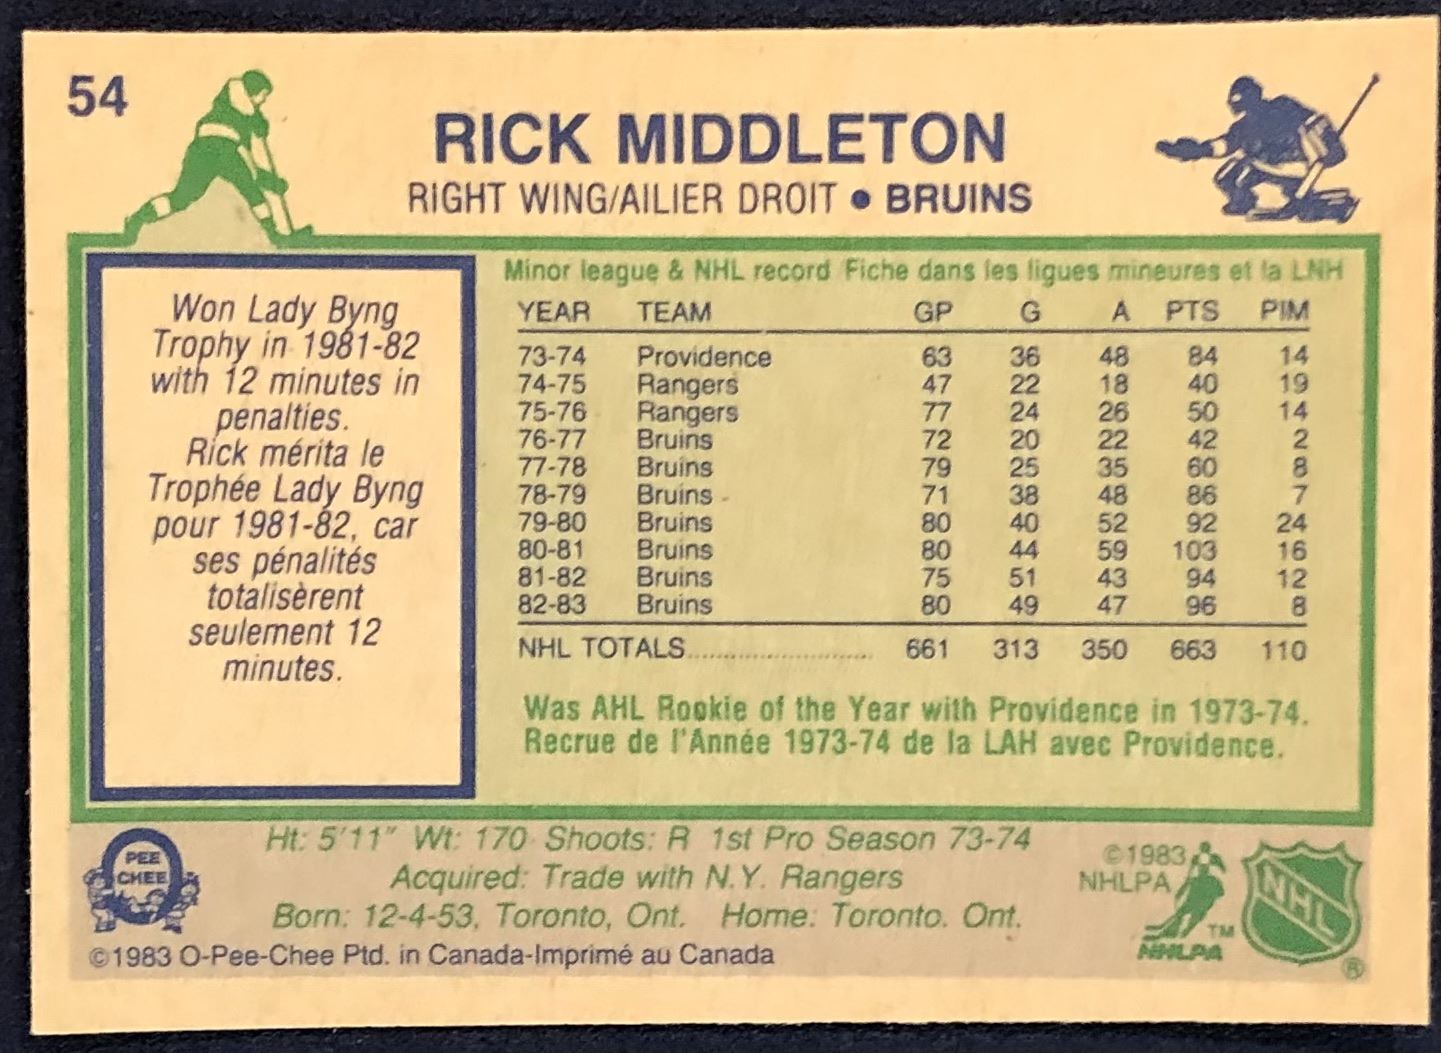 54
RICK MIDDLETON
RIGHT WING/AILIER DROIT • BRUINS
Won Lady Byng
Trophy in 1981-82
with 12 minutes in
penalties.
Rick mérita le
Trophée Lady Byng
pour 1981-82, car
ses pénalités
totalisèrent
seulement 12
minutes.
Minor league & NHL record Fiche dans les ligues mineures et la LNH
YEAR TEAM GP G A PTS PIM
73-74 Providence 63 36 48 84 14
74-75 Rangers 47 22 18 40 19
75-76 Rangers 77 24 26 50 14
76-77 Bruins 72 20 22 42 2
77-78 Bruins 79 25 35 60 8
78-79 Bruins 71 38 48 86 7
79-80 Bruins 80 40 52 92 24
80-81 Bruins 80 44 59 103 16
81-82 Bruins 75 51 43 94 12
82-83 Bruins 80 49 47 96 8
NHL TOTALS.......................... 661 313 350 663 110
Was AHL Rookie of the Year with Providence in 1973-74.
Recrue de l'Année 1973-74 de la LAH avec Providence.
Ht: 5'11" Wt: 170 Shoots: R 1st Pro Season 73-74
Acquired: Trade with N.Y. Rangers
Born: 12-4-53, Toronto, Ont. Home: Toronto. Ont.
©1983 O-Pee-Chee Ptd. in Canada-Imprimé au Canada
PEE
CHEE
©1983
NHLPA
TM
NHLPA
NHL
®